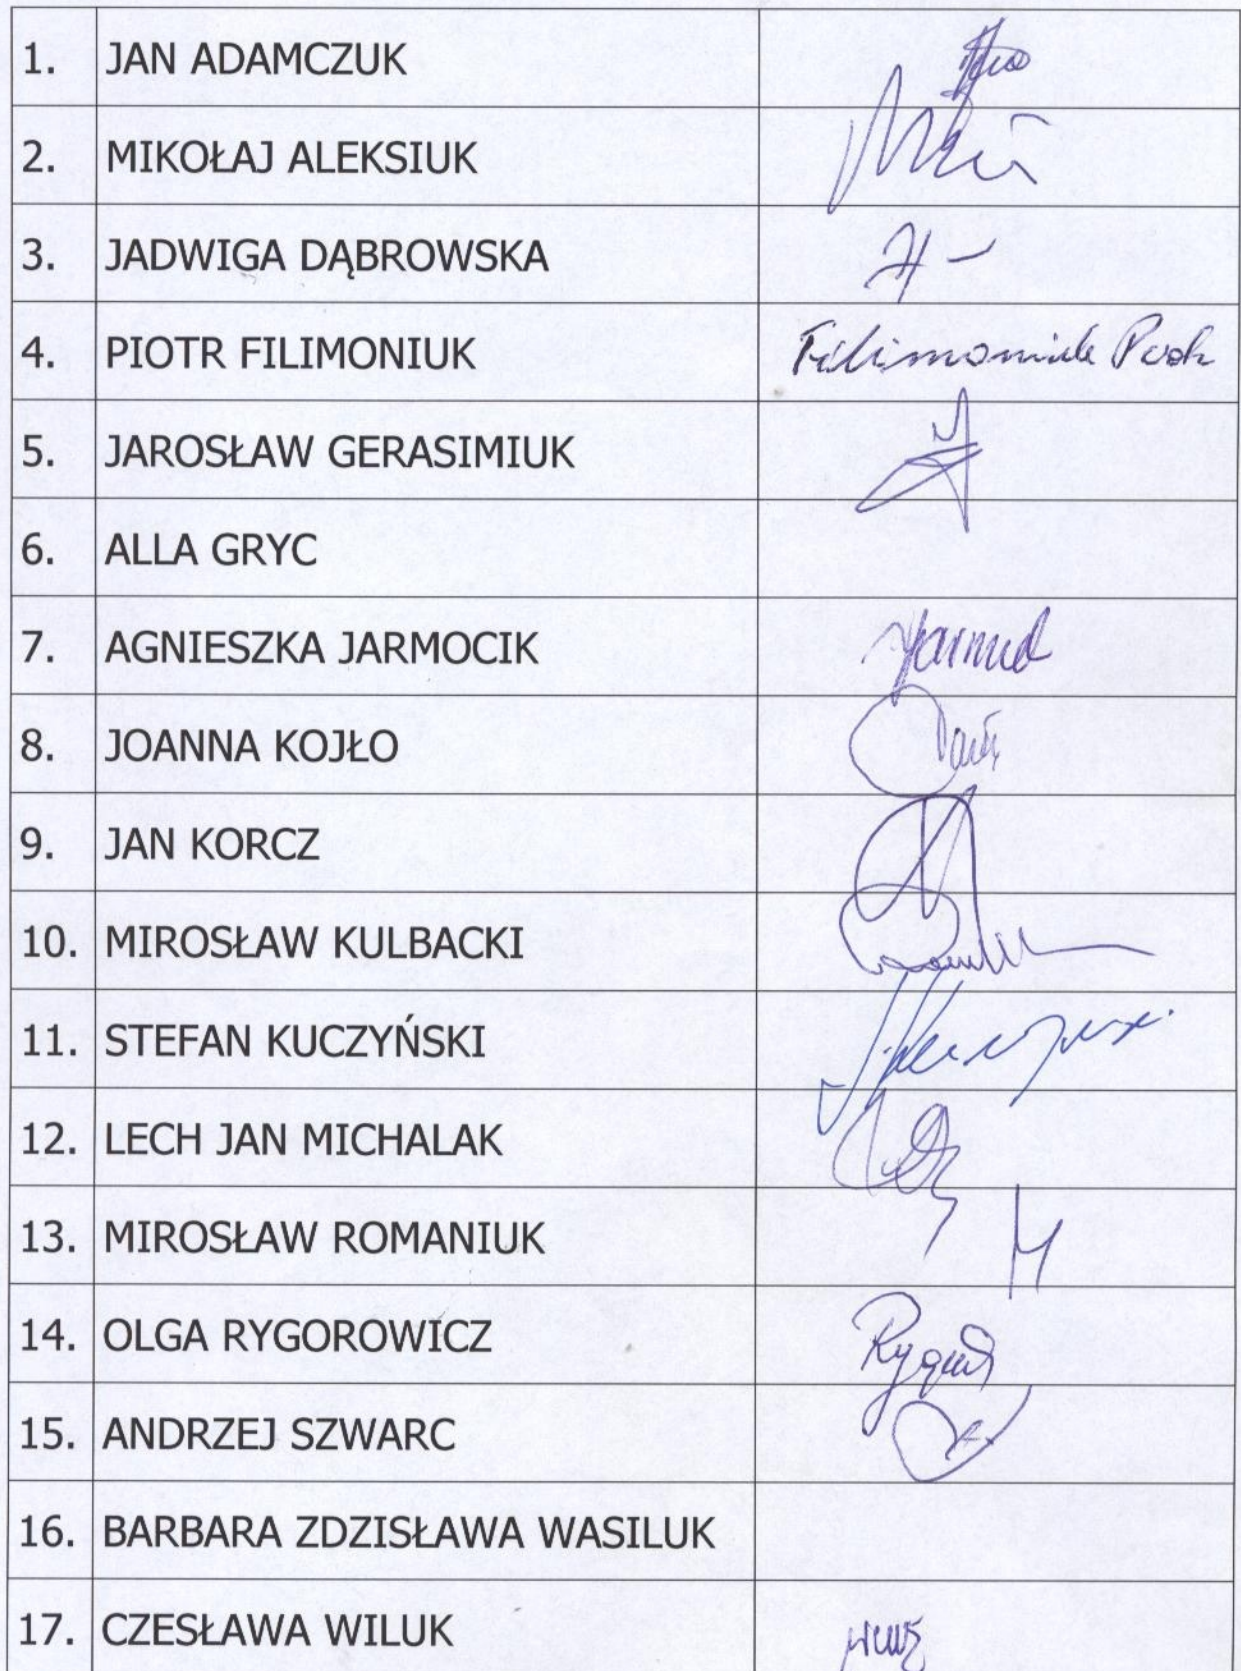 1. JAN ADAMCZUK
2. MIKOŁAJ ALEKSIUK
3. JADWIGA DĄBROWSKA
4. PIOTR FILIMONIUK Filimoniuk Piotr
5. JAROSŁAW GERASIMIUK
6. ALLA GRYC
7. AGNIESZKA JARMOCIK
8. JOANNA KOJŁO
9. JAN KORCZ
10. MIROSŁAW KULBACKI
11. STEFAN KUCZYŃSKI
12. LECH JAN MICHALAK
13. MIROSŁAW ROMANIUK
14. OLGA RYGOROWICZ
15. ANDRZEJ SZWARC
16. BARBARA ZDZISŁAWA WASILUK
17. CZESŁAWA WILUK